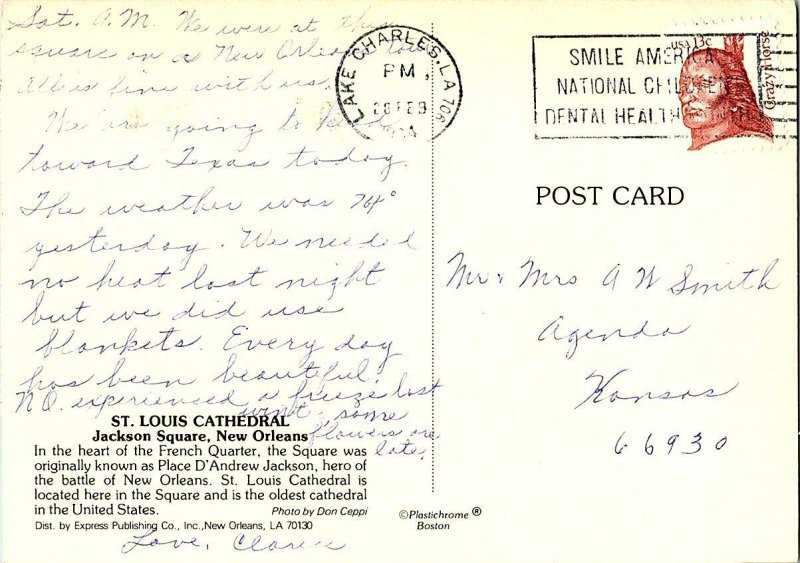 Sat. A.M. We were at this
square on a New Orleans tour
All is fine with us.
We are going to head
toward Texas today.
The weather was 74°
yesterday. We needed
no heat last night
but we did use
blankets. Every day
has been beautiful.
N.O. experienced a freeze last
wint, some
flowers are
late.
ST. LOUIS CATHEDRAL
Jackson Square, New Orleans
In the heart of the French Quarter, the Square was
originally known as Place D'Andrew Jackson, hero of
the battle of New Orleans. St. Louis Cathedral is
located here in the Square and is the oldest cathedral
in the United States.
Photo by Don Ceppi
Dist. by Express Publishing Co., Inc., New Orleans, LA 70130
Love,
©Plastichrome®
Boston
LAKE CHARLES, LA 706
PM
28 FEB
SMILE AMERICA
NATIONAL CHILDREN
DENTAL HEALTH MONTH
USA 13c
Crazy Horse
POST CARD
Mr & Mrs A W Smith
Agenda
Kansas
66930